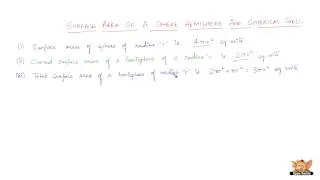 SURFACE AREA OF A SPHERE HEMISPHERE AND SPHERICAL SHELL
(i) Surface area of sphere of radius 'r' is 4πr² sq units
(ii) Curved surface area of a hemisphere of radius 'r' is 2πr² sq units
(iii) Total surface area of a hemisphere of radius 'r' is 2πr² + πr² = 3πr² sq units